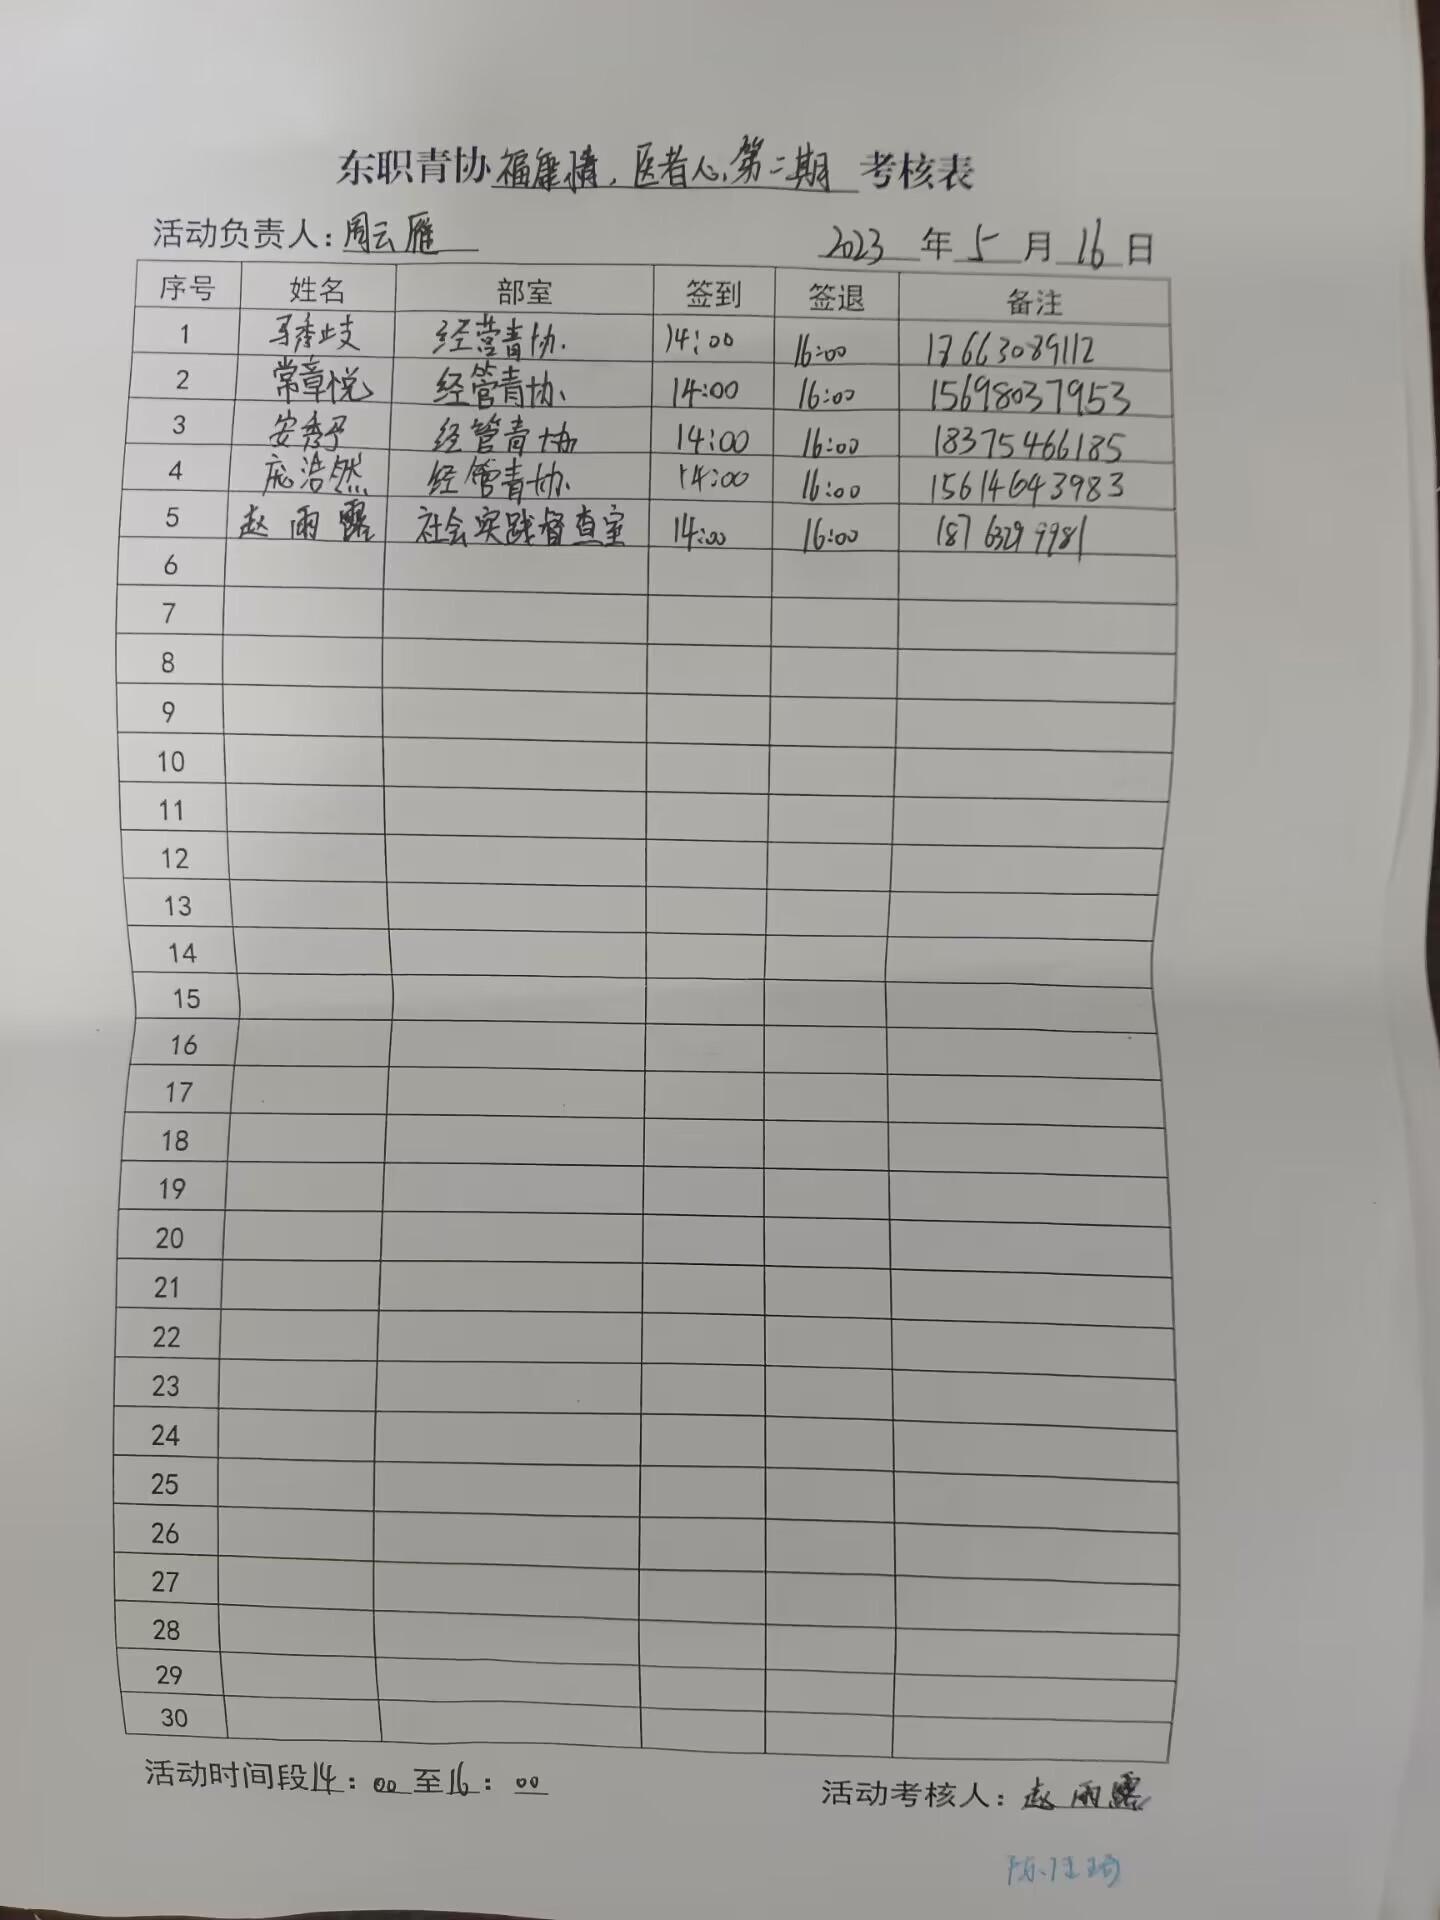 东职青协福康情,医者心,第二期 考核表
活动负责人:周云雁 2023 年 5 月 16 日
序号 姓名 部室 签到 签退 备注
1 马秀歧 经营青协. 14:00 16:00 17663089112
2 常章悦 经管青协. 14:00 16:00 15698037953
3 安秀 经管青协 14:00 16:00 18375466185
4 庞浩然 经管青协. 14:00 16:00 15614643983
5 赵雨露 社会实践督查室 14:00 16:00 18763299981
6
7
8
9
10
11
12
13
14
15
16
17
18
19
20
21
22
23
24
25
26
27
28
29
30
活动时间段14:00至16:00 活动考核人:赵雨露